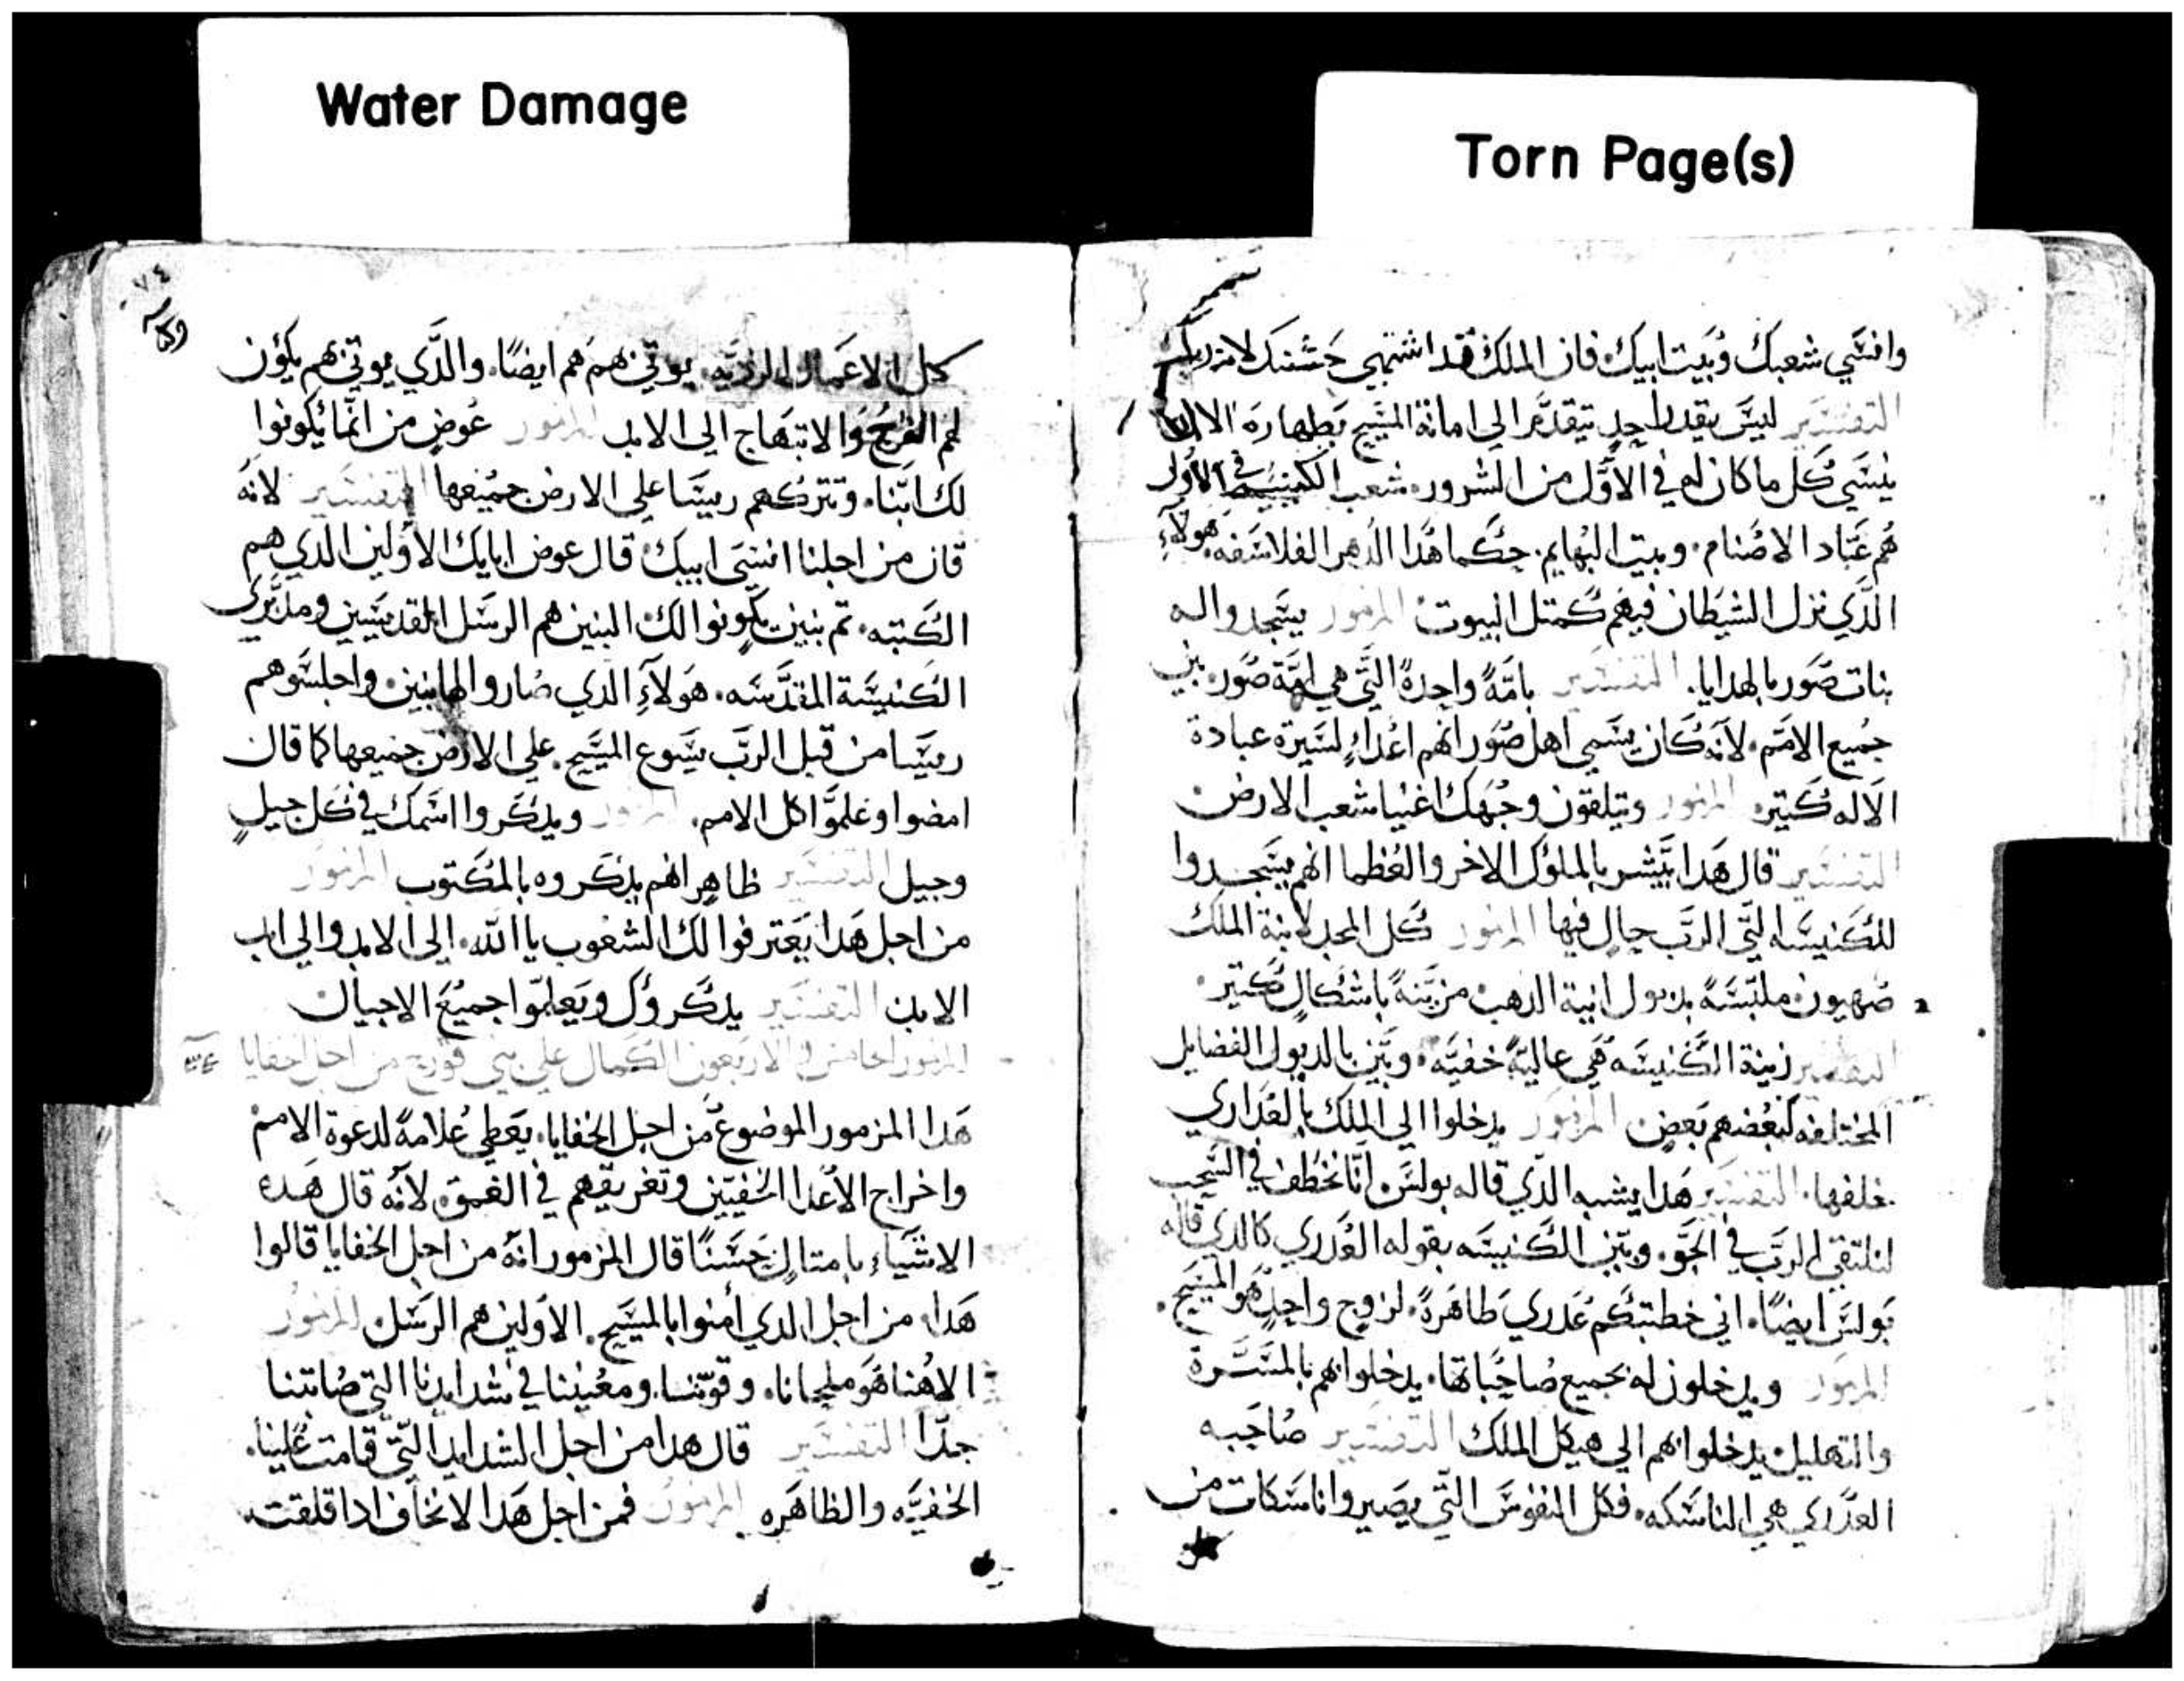 Water Damage
Torn Page(s)
وانسي شعبك وبيت ابيك فان الملك قد اشتهي حسنك لانه ربك
التفسير ليس يقدر احد يتقدم الي امانة المسيح بطهارة الا ان
ينسي كل ما كان له في الاول من الشرور شعب الاول
هم عباد الاصنام وبيت البهايم حكما هدا الدهر الفلاسفه هولاء
الدي نزل الشيطان فيهم كمتل البيوت المزمور يسجدوا له
بنات صور بالهدايا التفسير بامة واحدة التي هي امة صور بين
جميع الامم لانه كان يسمي اهل صور انهم اعداء لسيرة عبادة
الاله كتير المزمور ويتلقون وجهك اغنيا شعب الارض
التفسير قال هدا يبشر بالملوك الاخر والعظما انهم يسجدوا
للكنيسه التي الرب حال فيها المزمور كل المجد لابنة الملك
صهيون ملبسة بديول ابنية الدهب مزينة باشكال كتير
التفسير زينة الكنيسه هي عالية خفيه وبين بالديول الفضايل
المختلفه لبعضهم بعض المزمور يدخلوا الي الملك بالعداري
خلفها التفسير هدا يشبه الدي قاله بولس انا نخطف في السحب
لنلتقي الرب في الجو وبين الكنيسه بقوله العدري كالدي قاله
بولس ايضا اني خطبتكم عدري طاهرة لزوج واحد هو المسيح
المزمور ويدخلون له بجميع صاحباتها يدخلوا بهم بالمسرة
والتهليل يدخلوا بهم الي هيكل الملك التفسير صاحبه
العدراي هي الناسكه فكل النفوس التي يصيروا ناسكات من
٧٤
كل الاعمال الرديه يوتي بهم هم ايضا والدي يوتي بهم يكون
لهم الفرح والابتهاج الي الابد المزمور عوض من يكونوا
لك ابنا وتتركهم ريسا علي الارض جميعها التفسير لانه
قال من اجلنا انسي ابيك قال عوض ابايك الاولين الدي هم
الكتبه تم بنين يكونوا لك البنين هم الرسل القديسين ومدبري
الكنيسة المقدسه هولاء الدي صاروا لها بنين واجلسوهم
ريسا من قبل الرب يسوع المسيح علي الارض جميعها كما قال
امضوا وعلموا كل الامم المزمور ويدكروا اسمك في كل جيل
وجيل التفسير ظاهر انهم يدكروه بالمكتوب المزمور
من اجل هدا يعترفوا لك الشعوب يا الله الي الابد والي ابد
الابد التفسير يدكروك ويعلموا جميع الاجيال
المزمور الخامس والاربعون الكمال علي بني قورح من اجل الخفايا
هدا المزمور الموضوع من اجل الخفايا يعطي علامة لدعوة الامم
واخراج الاعدا الخفيين وتغريقهم في العمق لانه قال هده
الاشياء بامتال حسنا قال المزمور انه من اجل الخفايا قالوا
هدا من اجل الدي امنوا بالمسيح الاولين هم الرسل المزمور
الاهنا هو ملجانا وقوتنا ومعيننا في شدايدنا التي صابتنا
جدا التفسير قال هدا من اجل الشدايد التي قامت علينا
الخفيه والظاهره المزمور فمن اجل هدا لا نخاف ادا قلقت